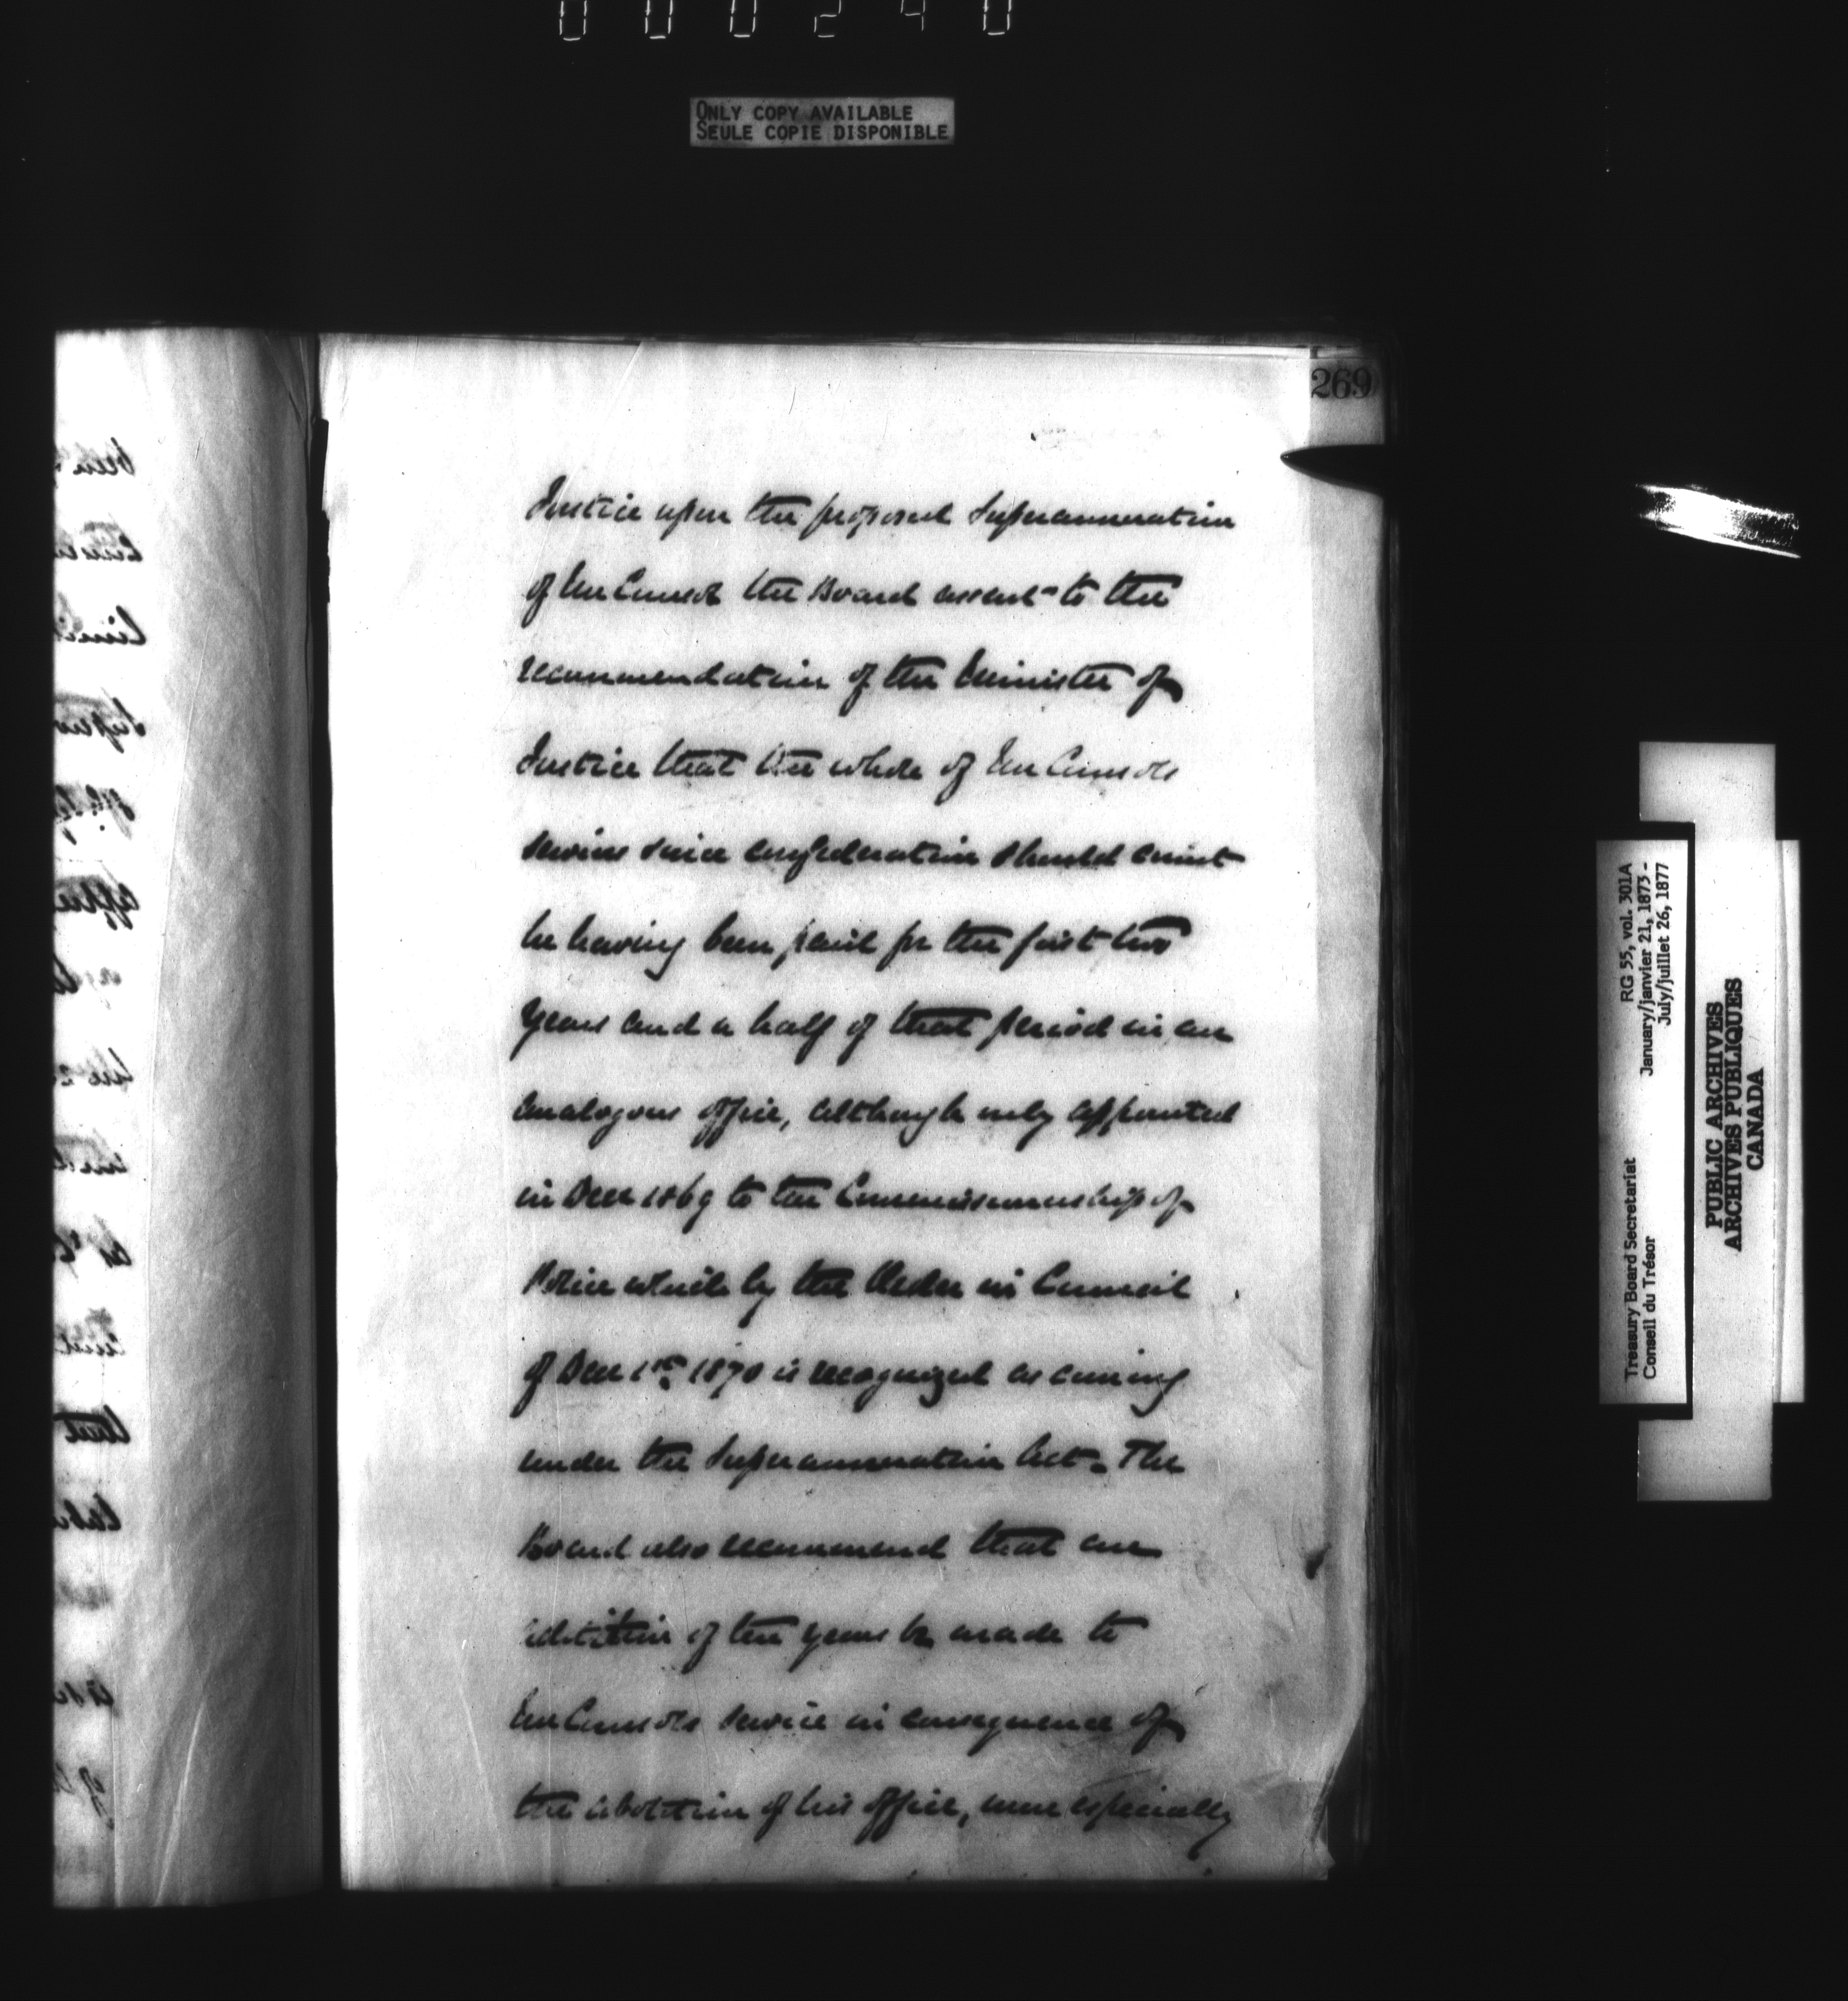 000240
ONLY COPY AVAILABLE
SEULE COPIE DISPONIBLE
269
Justice upon the proposed Superannuation
of Mr Coursol the Board assent to the
recommendation of the Minister of
Justice that the whole of Mr Coursols
service since confederation should count
he having been paid for the first two
years and a half of that period in an
analogous office, although only appointed
in Decr 1869 to the Commissionership of
Police which by the Order in Council
of Decr 1st 1870 is recognized as coming
under the Superannuation Act. The
Board also recommend that an
addition of ten years be made to
Mr Coursols service in consequence of
the abolition of his office, more especially
Treasury Board Secretariat RG 55, vol. 301A
Conseil du Trésor January/janvier 21, 1873 -
July/juillet 26, 1877
PUBLIC ARCHIVES
ARCHIVES PUBLIQUES
CANADA